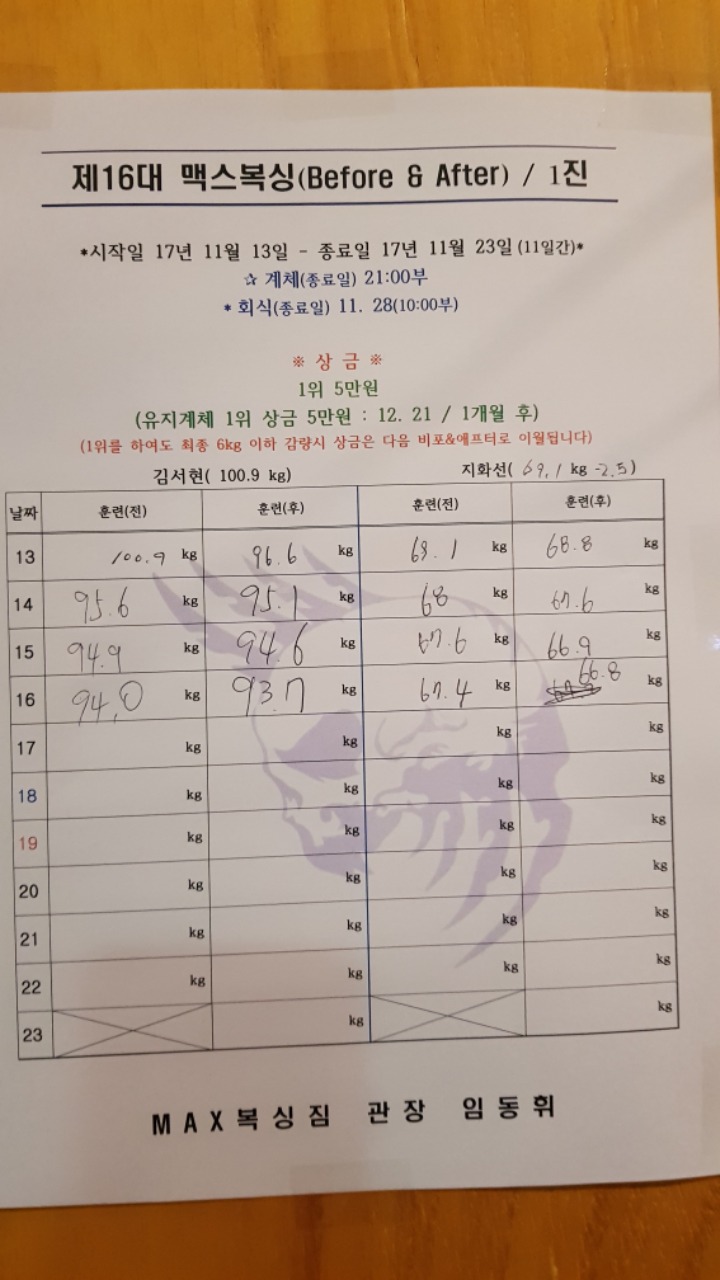 제16대 맥스복싱(Before & After) / 1진
*시작일 17년 11월 13일 - 종료일 17년 11월 23일 (11일간)*
☆ 계체(종료일) 21:00부
* 회식(종료일) 11. 28(10:00부)
※ 상 금 ※
1위 5만원
(유지계체 1위 상금 5만원 : 12. 21 / 1개월 후)
(1위를 하여도 최종 6kg 이하 감량시 상금은 다음 비포&애프터로 이월됩니다)
김서현( 100.9 kg) 지화선( 69.1 kg -2.5)
날짜 훈련(전) 훈련(후) 훈련(전) 훈련(후)
13 100.9 kg 96.6 kg 69.1 kg 68.8 kg
14 95.6 kg 95.1 kg 68 kg 67.6 kg
15 94.9 kg 94.6 kg 67.6 kg 66.9 kg
16 94.0 kg 93.7 kg 67.4 kg 66.8 kg
17 kg kg kg kg
18 kg kg kg kg
19 kg kg kg kg
20 kg kg kg kg
21 kg kg kg kg
22 kg kg kg kg
23 kg kg
MAX복싱짐 관장 임동휘